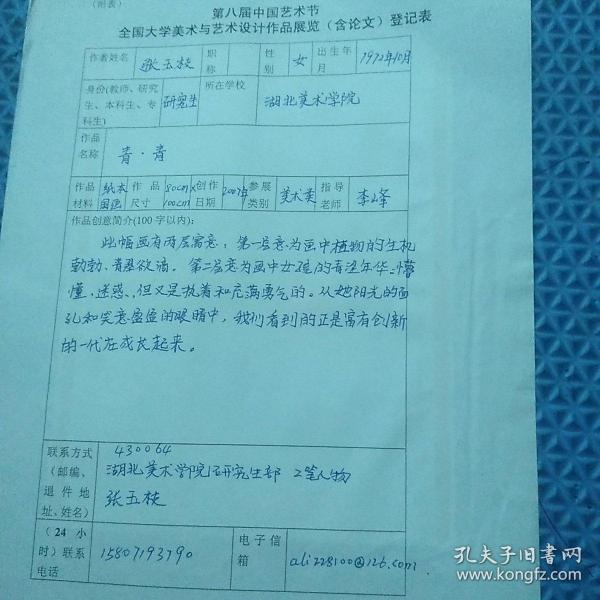 (附表)
第八届中国艺术节
全国大学美术与艺术设计作品展览（含论文）登记表
作者姓名 张玉枝 职称 性别 女 出生年月 1972年10月
身份(教师、研究生、本科生、专科生) 研究生 所在学校 湖北美术学院
作品名称 青·青
作品材料 纸本国画 作品尺寸 80cm×100cm 创作日期 2007年 参展类别 美术类 指导老师 李峰
作品创意简介(100字以内):
此幅画有两层寓意：第一层意为画中植物的生机
勃勃、青翠欲滴。第二层意为画中女孩的青涩年华:懵
懂、迷惑、但又是执着和充满勇气的。从她阳光的面
孔和笑意盈盈的眼睛中，我们看到的正是富有创新
的一代在成长起来。
联系方式（邮编、退件地址、姓名）
430064
湖北美术学院研究生部 工笔人物
张玉枝
（24小时）联系电话 15807193790 电子信箱 ali228100@126.com
孔夫子旧书网
www.kongfz.com